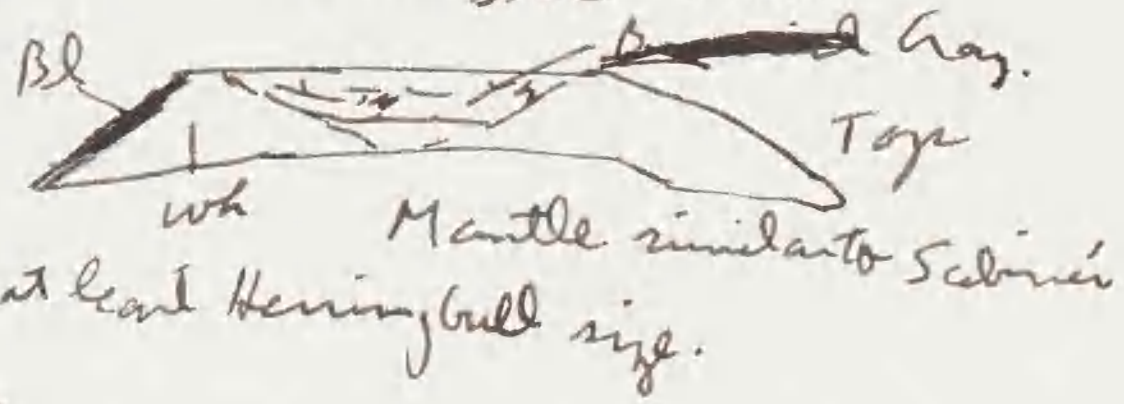 Bl
Gray.
Top
wh
Mantle similar to Sabine's
at least Herring Gull size.